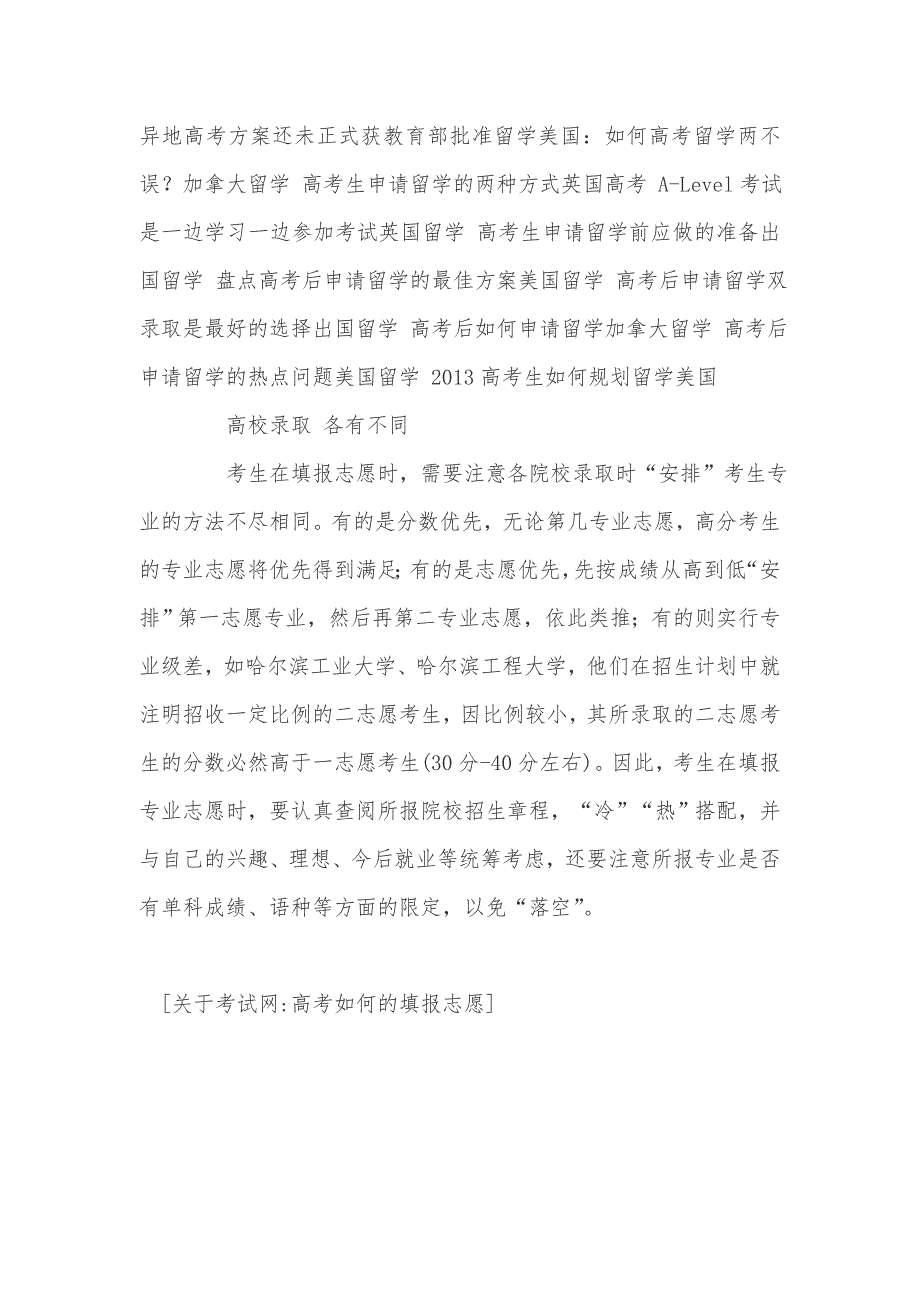 异地高考方案还未正式获教育部批准留学美国：如何高考留学两不
误？加拿大留学 高考生申请留学的两种方式英国高考 A-Level考试
是一边学习一边参加考试英国留学 高考生申请留学前应做的准备出
国留学 盘点高考后申请留学的最佳方案美国留学 高考后申请留学双
录取是最好的选择出国留学 高考后如何申请留学加拿大留学 高考后
申请留学的热点问题美国留学 2013高考生如何规划留学美国
高校录取 各有不同
考生在填报志愿时，需要注意各院校录取时“安排”考生专
业的方法不尽相同。有的是分数优先，无论第几专业志愿，高分考生
的专业志愿将优先得到满足；有的是志愿优先，先按成绩从高到低“安
排”第一志愿专业，然后再第二专业志愿，依此类推；有的则实行专
业级差，如哈尔滨工业大学、哈尔滨工程大学，他们在招生计划中就
注明招收一定比例的二志愿考生，因比例较小，其所录取的二志愿考
生的分数必然高于一志愿考生(30分-40分左右)。因此，考生在填报
专业志愿时，要认真查阅所报院校招生章程，“冷”“热”搭配，并
与自己的兴趣、理想、今后就业等统筹考虑，还要注意所报专业是否
有单科成绩、语种等方面的限定，以免“落空”。
[关于考试网:高考如何的填报志愿]